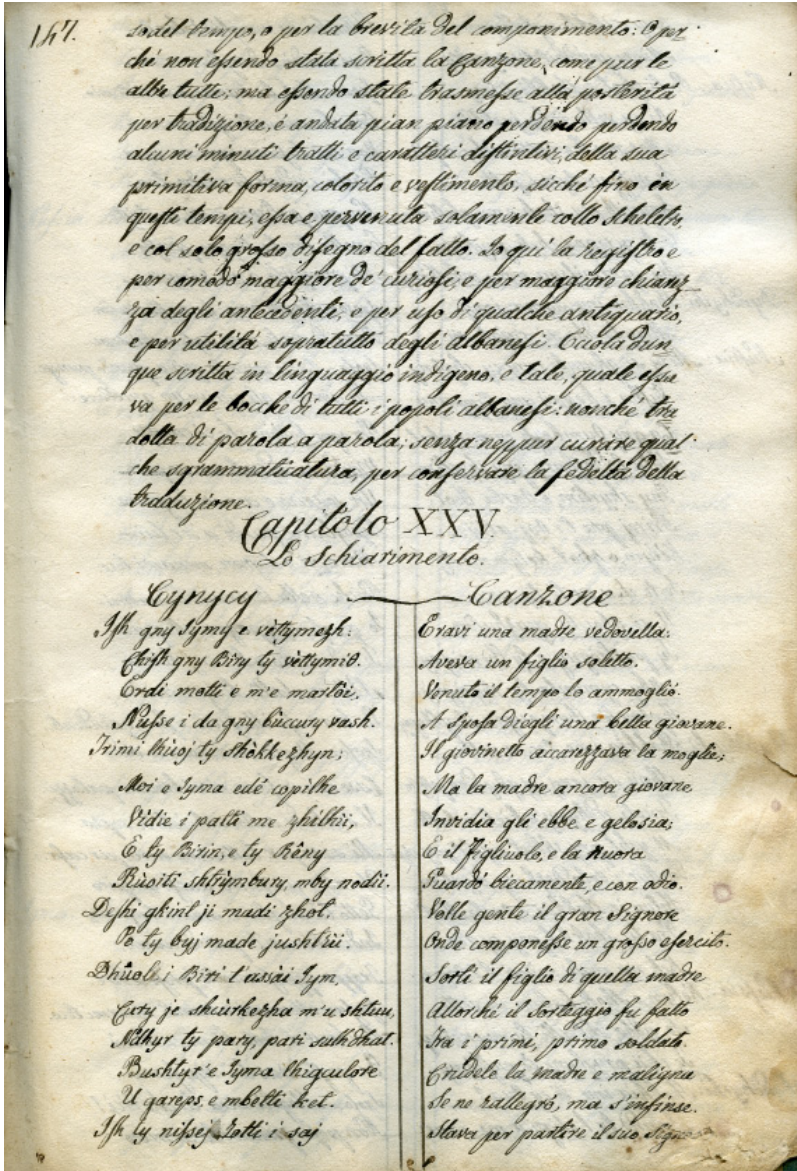 147.
so del tempo, o per la brevità del componimento: O per-
ché non essendo stata scritta la Canzone, come pur le
altre tutte; ma essendo state trasmesse alla posterità
per tradizione, é andata pian piano perdendo perdendo
alcuni minuti tratti e caratteri distintivi, della sua
primitiva forma, colorito e vestimento, sicché fino in
questi tempi, essa e pervenuta solamente collo scheletro,
e col solo grosso disegno del fatto. Io qui la registro e
per comodo maggiore de' curiosi, e per maggiore chiarez-
za degli antecedenti, e per uso di qualche antiquario,
e per utilità sopratutto degli albanesi. Eccola dun-
que scritta in linguaggio indigeno, e tale, quale essa
va per le bocche di tutti i popoli albanesi: nonché tra
dotta di parola a parola; senza neppur curare qual-
che sgrammaticatura, per conservare la fedeltà della
traduzione.
Capitolo XXV.
Lo schiarimento.
Cynycy
Ish gny Iymy e vèttymezh:
Chish gny Biry ty vèttymiθ.
Erdi motti e m'e martôi.
Nusse i da gny bùccury vash.
Trimi lhùoj ty shòkkezhyn;
Moi e Iyma edé copilhe
Vidie i patti me zhilhii,
E ty Birin, e ty Rêny
Rùoiti shtrỳmbury, mby nodii.
Deshi gkint ji madi zhot.
Po ty byj made jushtrii.
Dhûole i Biri t'assài Iym,
Cury je shcùrkezha m'u shtuu,
Ndhyr ty pary, pari sulhdhat.
Bushtyr'e Iyma lhigculore
U gareps, e mbetti ket.
Ish ty nissej Zotti i saj
Canzone
Eravi una madre vedovella:
Aveva un figlio soletto.
Venuto il tempo lo ammogliò.
A sposa diegli una bella giovane.
Il giovinetto accarezzava la moglie;
Ma la madre ancora giovane
Invidia gli ebbe e gelosia;
E il Figliuolo, e la Nuora
Guardò biecamente, e con odio.
Volle gente il gran Signore
Onde componesse un grosso esercito.
Sortì il figlio di quella madre
Allorché il sorteggio fu fatto
Tra i primi, primo soldato.
Crudele la madre e maligna
Se ne rallegrò, ma s'infinse.
Stava per partire il suo